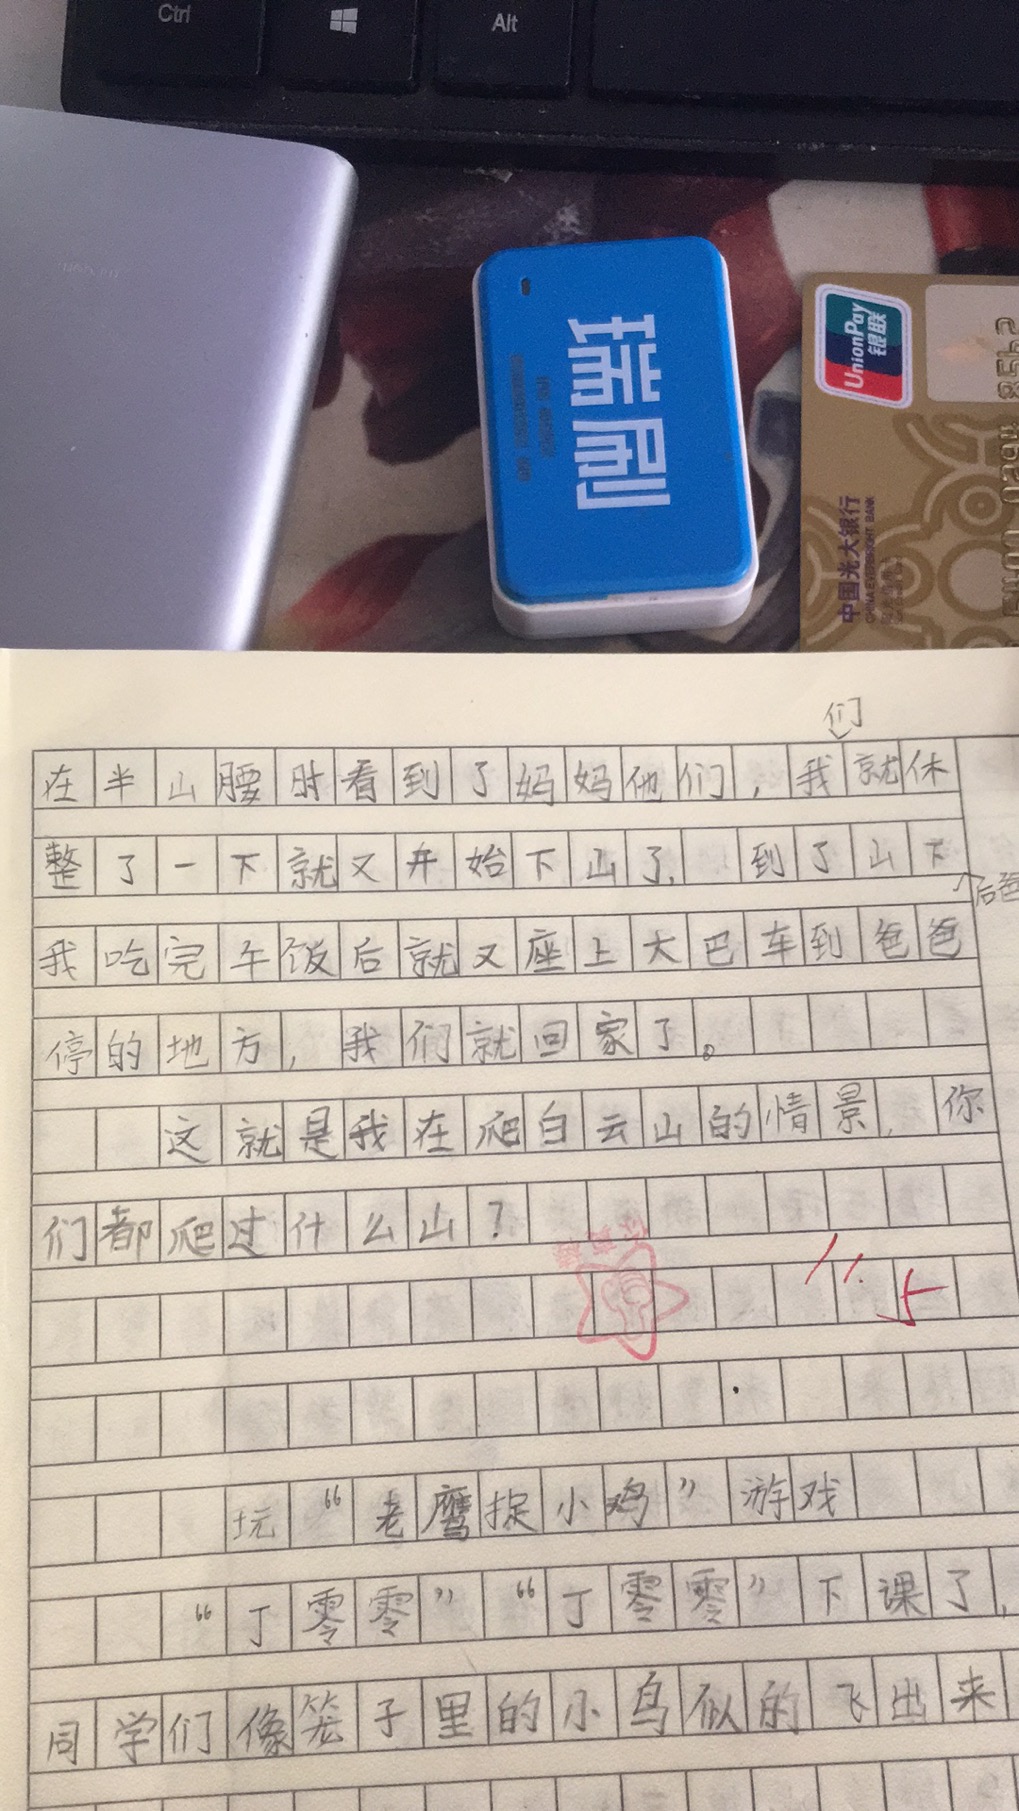 Ctrl
Alt
瑞刷
UnionPay
银联
中国光大银行
CHINA EVERBRIGHT BANK
们
在半山腰时看到了妈妈他们，我就休
整了一下就又开始下山了，到了山下
后爸
我吃完午饭后就又座上大巴车到爸爸
停的地方，我们就回家了。
这就是我在爬白云山的情景，你
们都爬过什么山？
11.5
玩“老鹰捉小鸡”游戏
“丁零零”“丁零零”下课了，
同学们像笼子里的小鸟似的飞出来